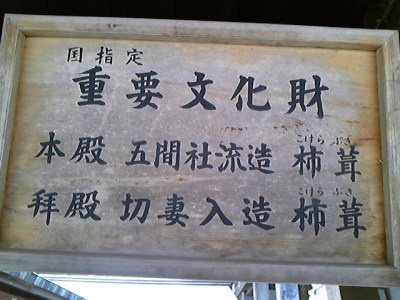 国指定
重要文化財
こけら ぶき
本殿 五間社流造 柿葺
こけら ぶき
拝殿 切妻入造 柿葺